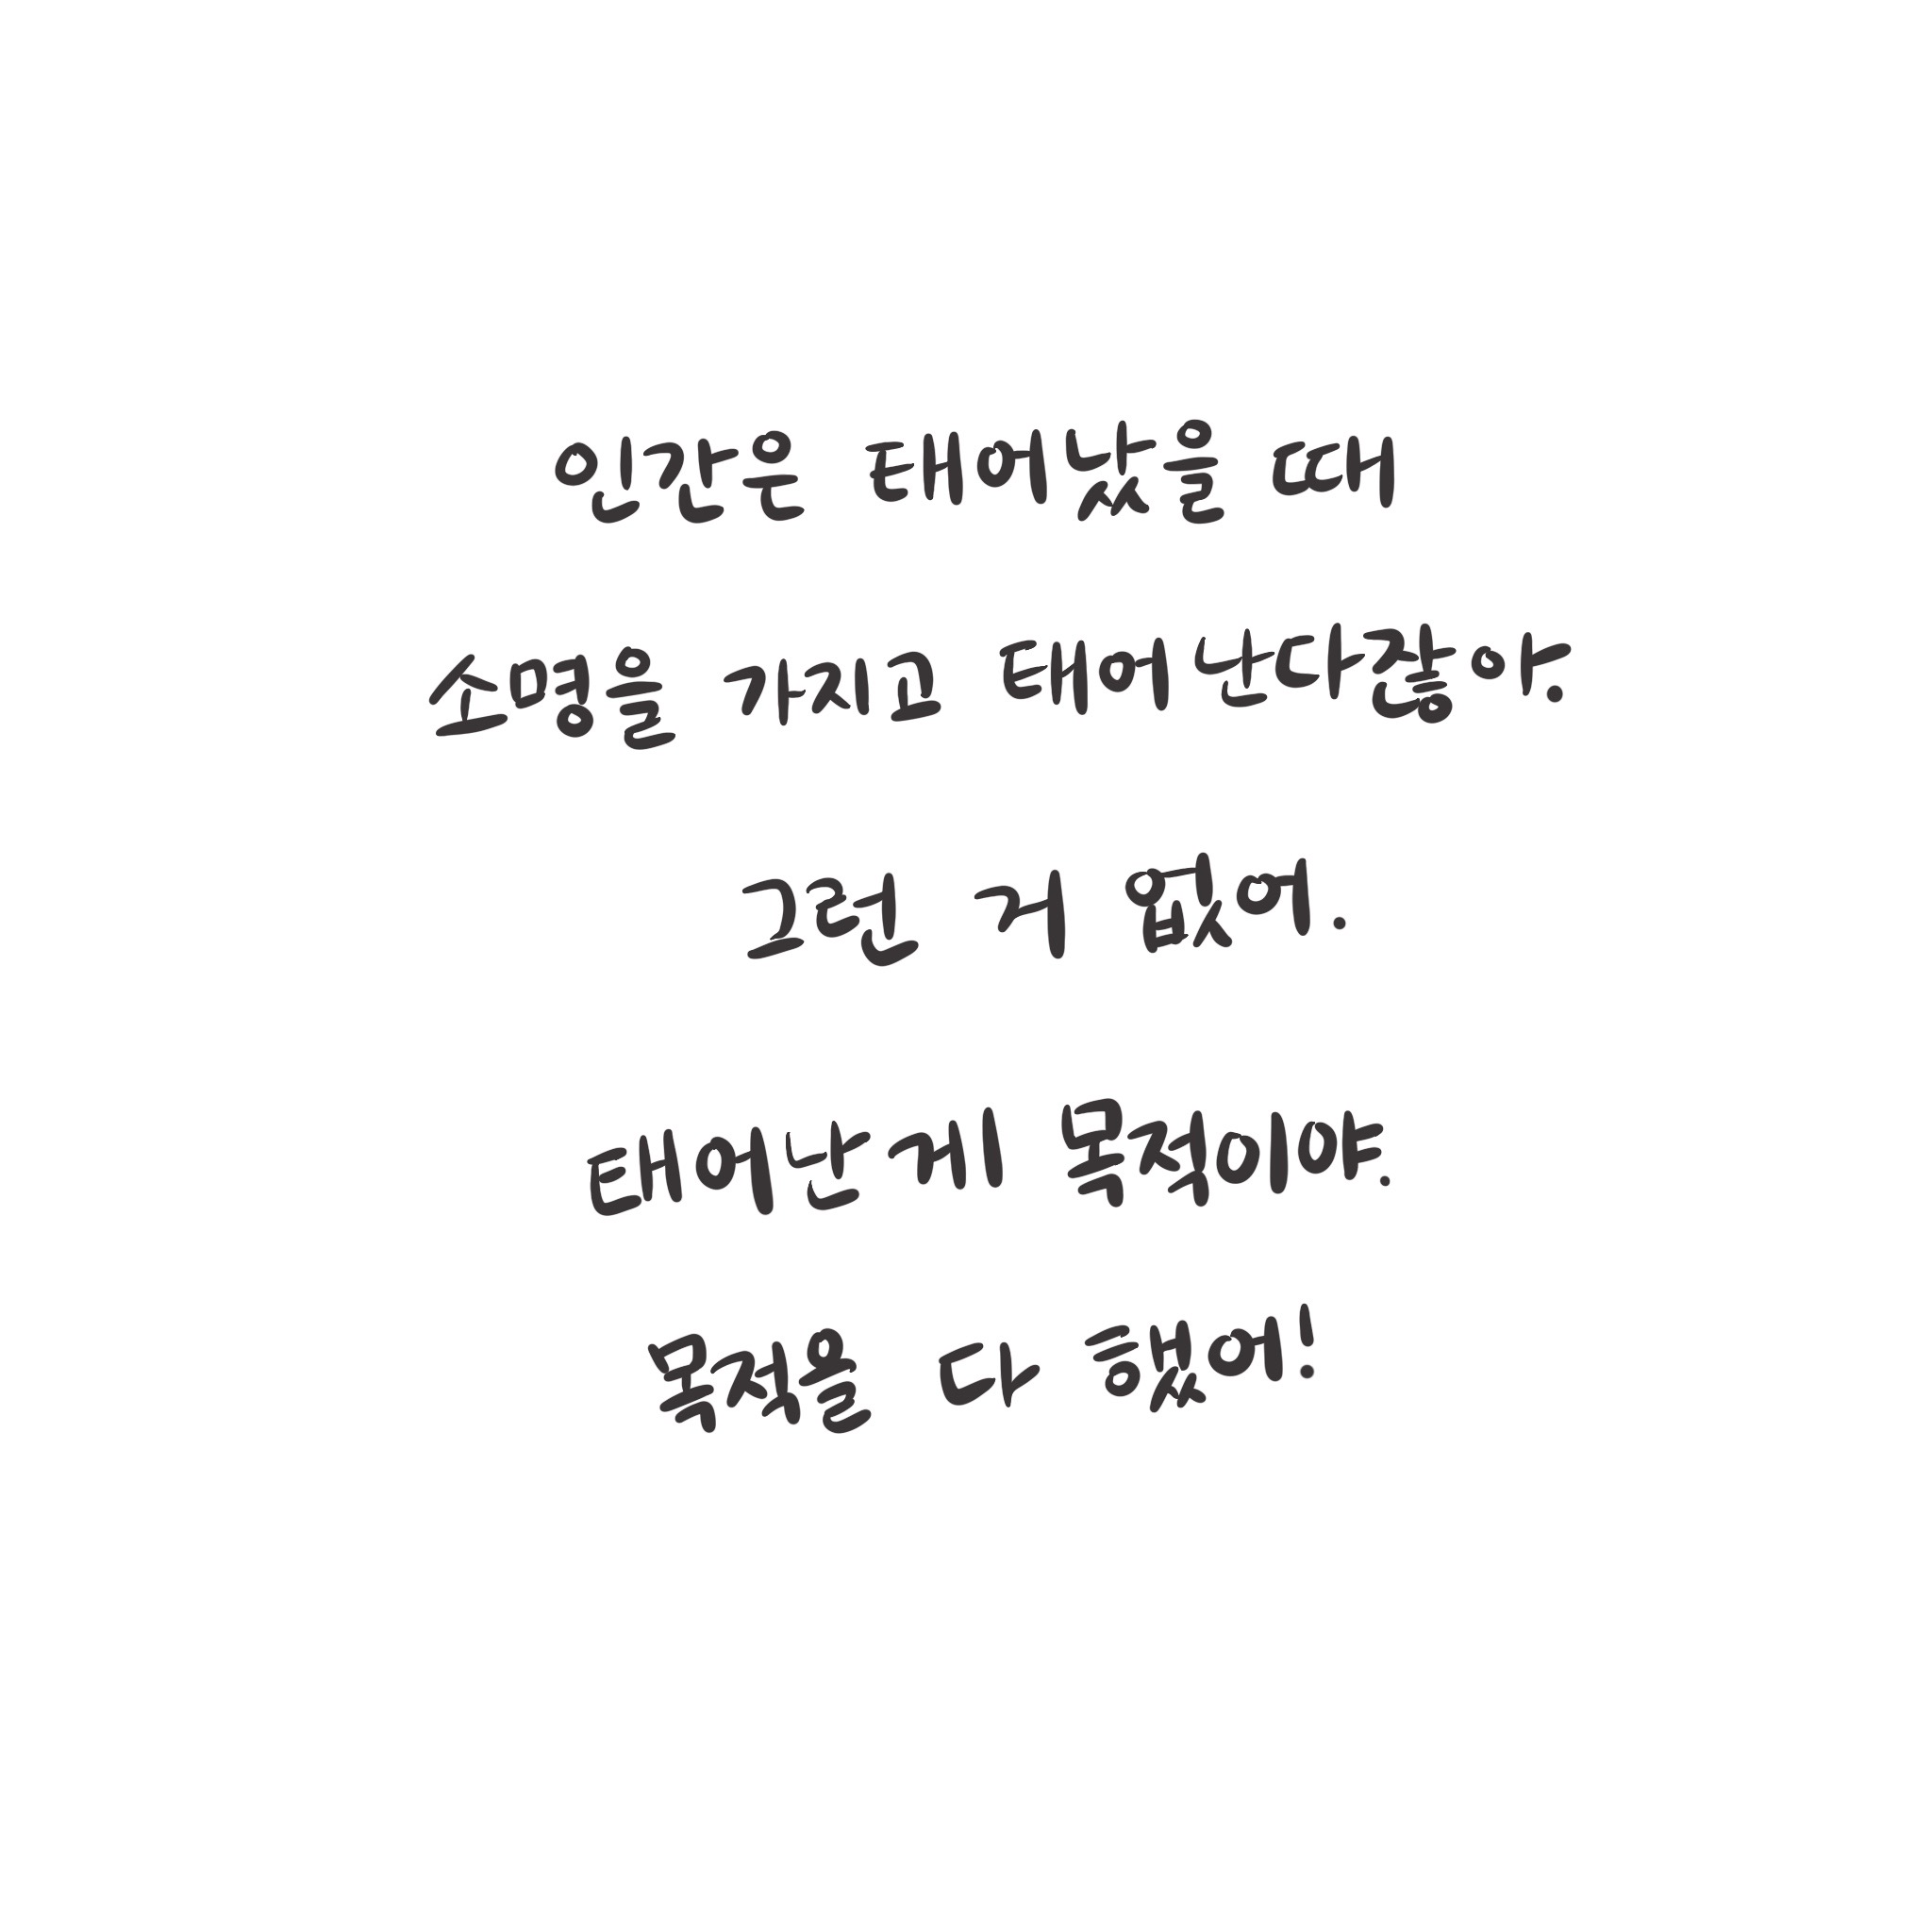 인간은 태어났을 때
소명을 가지고 태어난다잖아.
그런 거 없어.
태어난게 목적이야.
목적을 다 했어!